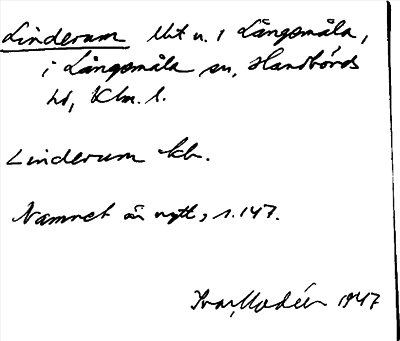 Linderum Uht u. 1 Långsmåla,
i Långsmåla sn, Handbörds
hd, Klm. l.
Linderum kb.
Namnet är nytt, s. 147.
Ivar Modéer 1947